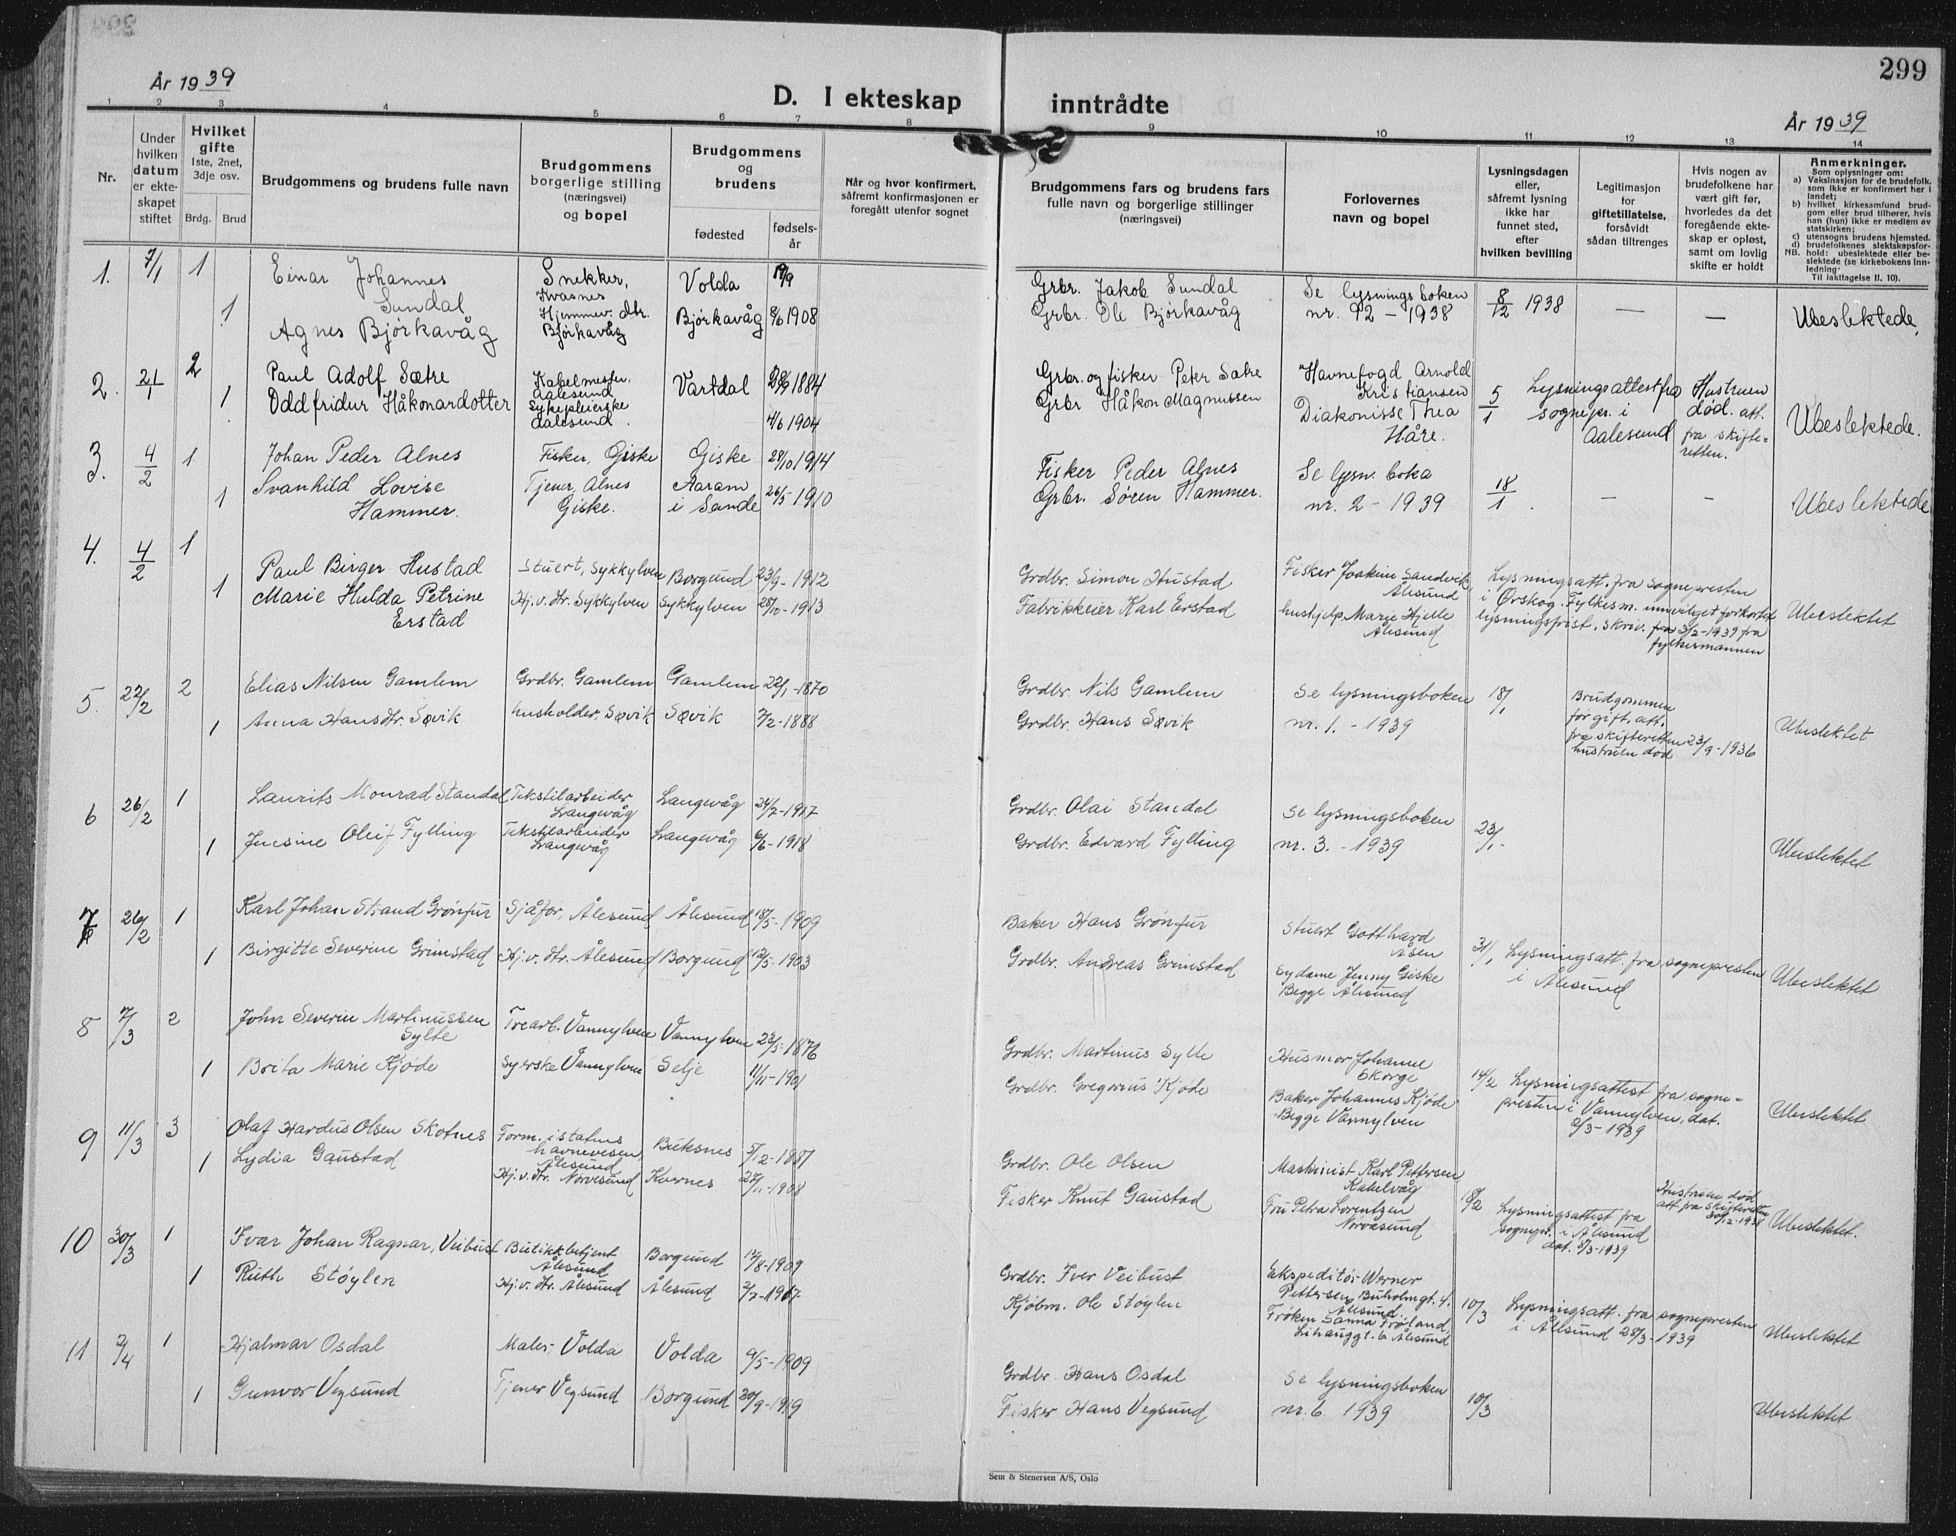 299
År 1939
D. I ekteskap inntrådte
År 1939
1 2 3 4 5 6 7 8 9 10 11 12 13 14
Nr.
Under hvilken datum er ekteskapet stiftet
Hvilket gifte
1ste, 2net, 3dje osv.
Brdg. Brud
Brudgommens og brudens fulle navn
Brudgommens borgerlige stilling (næringsvei) og bopel
Brudgommens og brudens
fødested
fødselsår
Når og hvor konfirmert, såfremt konfirmasjonen er foregått utenfor sognet
Brudgommens fars og brudens fars fulle navn og borgerlige stillinger (næringsvei)
Forlovernes navn og bopel
Lysningsdagen eller, såfremt lysning ikke har funnet sted, efter hvilken bevilling
Legitimasjon for giftetillatelse, forsåvidt sådan tiltrenges
Hvis nogen av brudefolkene har vært gift før, hvorledes da det foregående ekteskap er opløst, samt om lovlig skifte er holdt
Anmerkninger.
Som oplysninger om:
a) Vaksinasjon for de brudefolk, som ikke er konfirmert her i landet;
b) hvilket kirkesamfund brudgom eller brud tilhører, hvis han (hun) ikke er medlem av statskirken;
c) utensogns brudens hjemsted.
d) brudefolkenes slektskapsforhold: ubeslektede eller beslektede (se kirkebokens innledning
NB. Til iakttagelse II. 10).
1. 7/1 1 Einar Johannes Sundal Snekker, Kvasnes Volda Grbr. Jakob Sundal Se lysningsboken nr. 92 - 1938 8/12 1938 — — Ubeslektede.
1 Agnes Bjørkavåg Hjemmev. dtr. Bjørkavåg Bjørkavåg 8/6 1908 Grbr. Ole Bjørkavåg
2. 21/1 2 Paul Adolf Sætre Kabelmester. Aalesund Vartdal 1884 Grbr. og fisker Peter Sætre Havnefogd Arnold Kristiansen 5/1 Lysningsattest fra sognepr. i Aalesund Hustruen død. att. fra skifteretten. Ubeslektede.
1 Oddfridur Håkonardotter Sykepleierske Aalesund. 4/6 1904 Grbr Håkon Magnussen Diakonisse Thea Håre.
3. 4/2 1 Johan Peder Alnes Fisker, Giske Giske 28/10 1914 Fisker Peder Alnes Se lysn. boka nr. 2 - 1939 18/1. — — Ubeslektede
1 Svanhild Lovise Hammer. Tjener, Alnes Giske. Aaram i Sande 26/5 1910 Grbr. Søren Hammer.
4. 4/2 1 Paul Birger Hustad Stuert, Sykkylven Borgund 23/9 - 1912 Grdbr. Simon Hustad Fisker Joakim Sandvik Ålesund Lysningsatt. fra sognepresten i Ørskog. Fylkesm. innvilget forkortet lysningsfrist. skriv. fra 3/2-1939 fra fylkesmannen Ubeslektet
1 Marie Hulda Petrine Erstad Hj. v. dtr. Sykkylven Sykkylven 28/10-1913 Fabrikkeier Karl Erstad hushjelp Marie Hjelle Ålesund
5. 22/2 2 Elias Nilsen Gamlem Grdbr. Gamlem Gamlem 22/1-1870 Grdbr. Nils Gamlem Se lysningsboken nr. 1. - 1939 18/1 Brudgommen før gift, att. fra skifteretten 23/9-1936 hustruen død Ubeslektet
1 Anna Hansdtr. Søvik husholder. Søvik Søvik 7/2-1888 Grdbr. Hans Søvik
6 26/2 1 Laurits Monrad Standal Tekstilarbeider Langevåg Langevåg 24/2-1917 Grdbr. Olai Standal Se lysningsboken nr. 3. - 1939 23/1- Ubeslektet
1 Jensine Oleif Fylling Tekstilarbeider Langevåg Langevåg 6/6-1918 Grdbr. Edvard Fylling
7 26/2 1 Karl Johan Strand Grønfur Sjåfør, Ålesund Ålesund 18/5-1909 Baker Hans Grønfur Stuert Gotthard Åsen 31/1 Lysningsatt. fra sognepresten i Ålesund Ubeslektet
1 Birgitte Severine Grimstad Hj. v. dtr. Ålesund Borgund 12/5-1903 Grdbr. Andreas Grimstad Sydame Jenny Giske Begge Ålesund
8 7/3 2 John Severin Martinussen Sylte Trearb. Vannylven Vannylven 23/5-1876 Grdbr. Martinus Sylte Husmor Johanne Skorge 14/2 Lysningsattest fra sognepresten i Vannylven, dat. 2/3-1939 Ubeslektet
1 Brita Marie Kjøde Syerske Vannylven Selje 11/11-1901 Grdbr. Gregorius Kjøde Baker Johannes Kjøde Begge Vannylven
9 11/3 3 Olaf Hardus Olsen Skotnes Form. i statens havnevesen Ålesund Buksnes 5/12-1887 Grdbr. Ole Olsen Maskinist Karl Pettersen Kabelvåg 8/2 Lysningsattest fra sognepr. i Ålesund dat. 8/3-1939 Hustruen død att fra skifteretten Ubeslektet.
1 Lydia Gaustad Hj. v. dtr. Nørvesund Kornes 1908 Fisker Knut Gaustad Fru Petra Lorentzen Nørvasund
10 30/3 1 Ivar Johan Ragnar, Veibust Butikkbetjent Ålesund Borgund 12/8-1909 Grdbr. Iver Veibust Ekspeditør Werner Pettersen, Buholmgt. 4. Ålesund. 10/3 Lysningsatt. fra sognepresten i Ålesund 28/3-1939 Ubeslektet
1 Ruth Støylen Hj. v. dtr. Ålesund Ålesund 2/7-1917 Kjøbm. Ole Støylen Frøken Sanna Frøland, Lihauggt. 6 Ålesund
11 2/4 1 Hjalmar Osdal Maler Volda Volda 9/5-1909 Grdbr. Hans Osdal Se lysningsboken nr. 6 1939 10/3 Ubeslektet
1 Gunvor Vegsund Tjener Vegsund Borgund 30/9-1919 Fisker Hans Vegsund
Sem & Stenersen A/S, Oslo